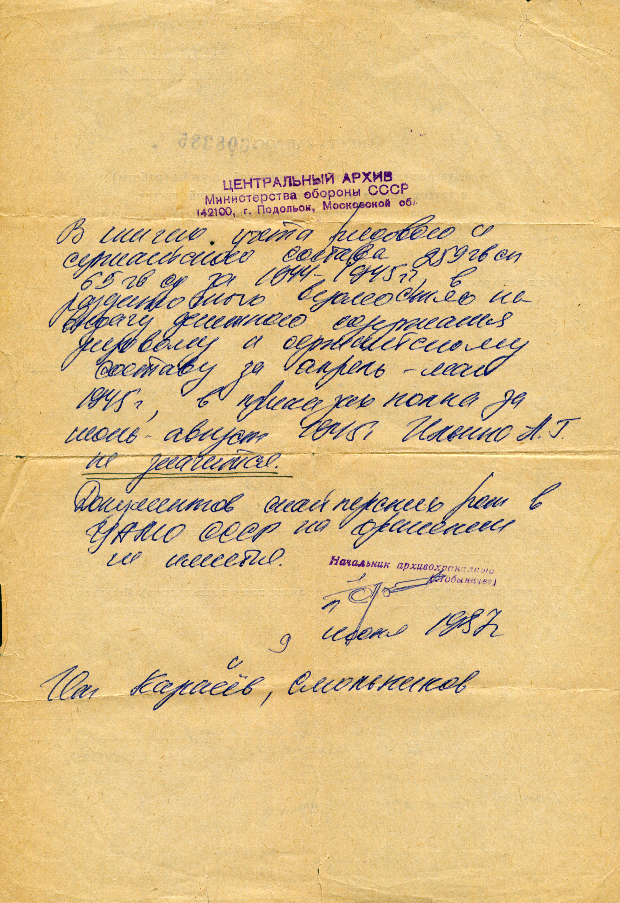 ЦЕНТРАЛЬНЫЙ АРХИВ
Министерства обороны СССР
142100, г. Подольск, Московской об
В книгах учета рядового и
сержантского состава 259 гв сп
65 гв сд за 1944-1945 г, в
раздаточного ведомостях на
выдачу денежного содержания
рядовому и сержантскому
составу за апрель-май
1945 г, в приказах полка за
июль-август 1945 г Ильина А.Г.
не значится.
Документов снайперских рот в
ЦАМО СССР на хранении
не имеется.
Начальник архивохранилища
9 июня 1987 г
Исп Карасёв, Смольников